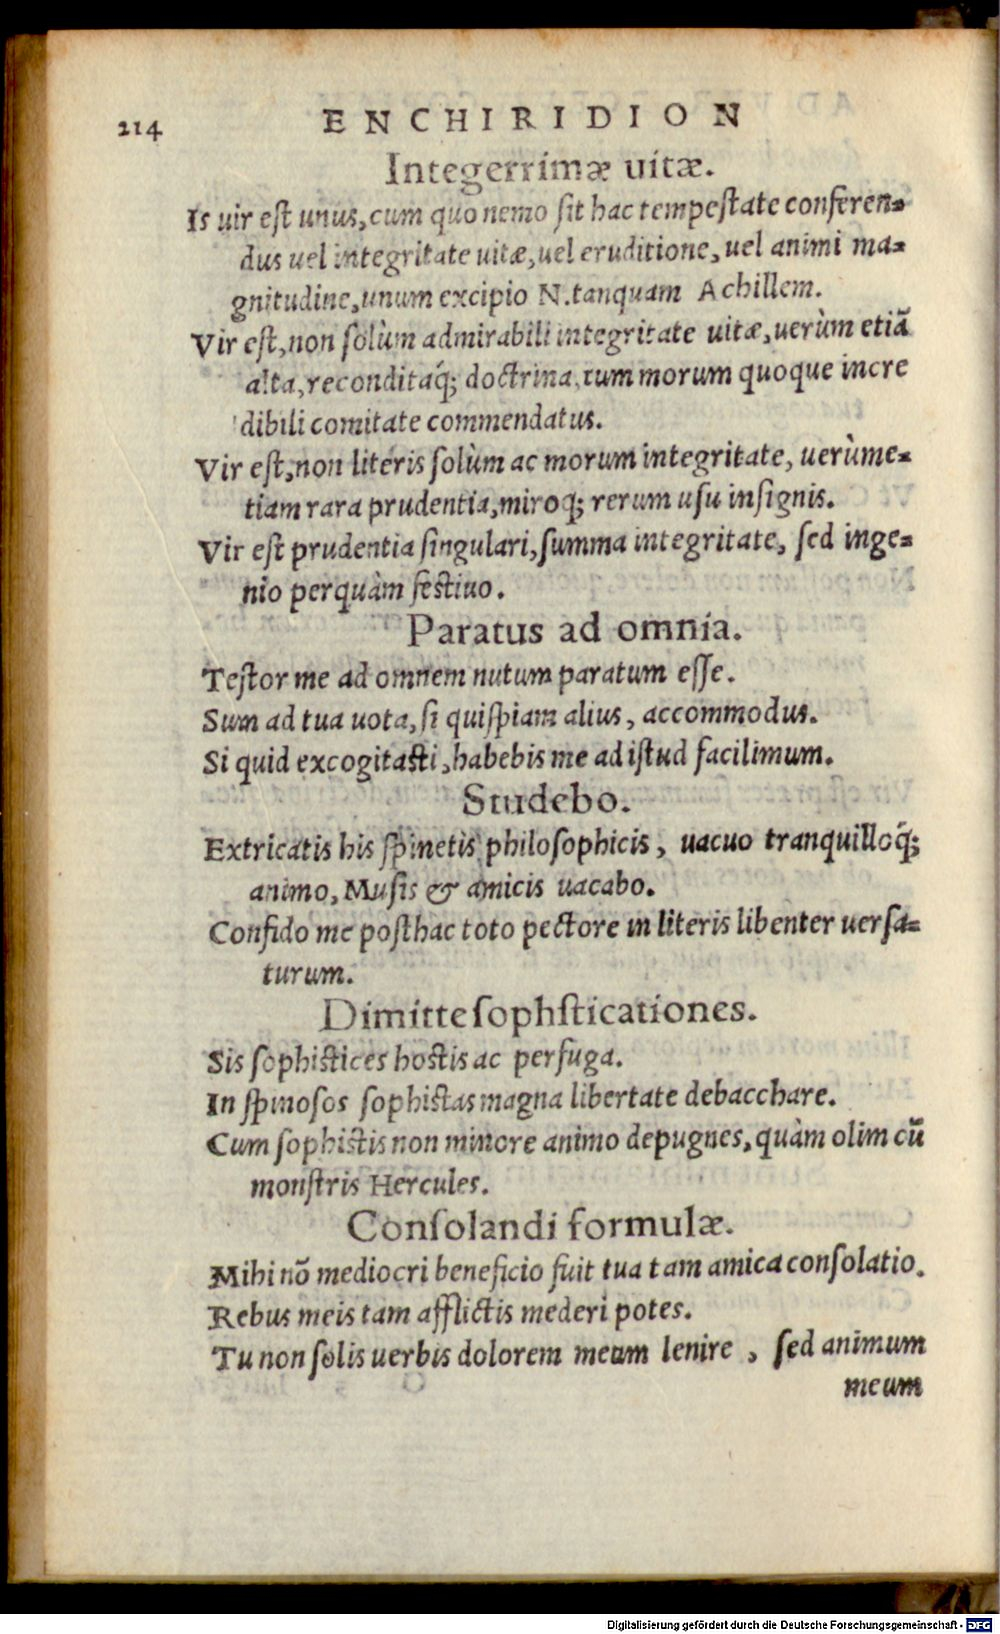 214 ENCHIRIDION
Integerrimæ uitæ.
Is uir eſt unus, cum quo nemo ſit hac tempeſtate conferen=
dus uel integritate uitæ, uel eruditione, uel animi ma=
gnitudine, unum excipio N. tanquam Achillem.
Vir eſt, non ſolùm admirabili integritate uitæ, uerùm etiã
alta, reconditaq́; doctrina, tum morum quoque incre
dibili comitate commendatus.
Vir eſt, non literis ſolùm ac morum integritate, uerùme=
tiam rara prudentia, miroq; rerum uſu inſignis.
Vir eſt prudentia ſingulari, ſumma integritate, ſed inge=
nio perquàm feſtiuo.
Paratus ad omnia.
Teſtor me ad omnem nutum paratum eſſe.
Sum ad tua uota, ſi quiſpiam alius, accommodus.
Si quid excogitaſti, habebis me ad iſtud facilimum.
Studebo.
Extricatis his ſpinetis philoſophicis, uacuo tranquilloq́;
animo, Muſis & amicis uacabo.
Confido me poſthac toto pectore in literis libenter uerſa=
turum.
Dimitte ſophſticationes.
Sis ſophiſtices hoſtis ac perfuga.
In ſpinoſos ſophiſtas magna libertate debacchare.
Cum ſophiſtis non minore animo depugnes, quàm olim cũ
monſtris Hercules.
Conſolandi formulæ.
Mihi nõ mediocri beneficio fuit tua tam amica conſolatio.
Rebus meis tam afflictis mederi potes.
Tu non ſolis uerbis dolorem meum lenire, ſed animum
meum
Digitalisierung gefördert durch die Deutsche Forschungsgemeinschaft - DFG